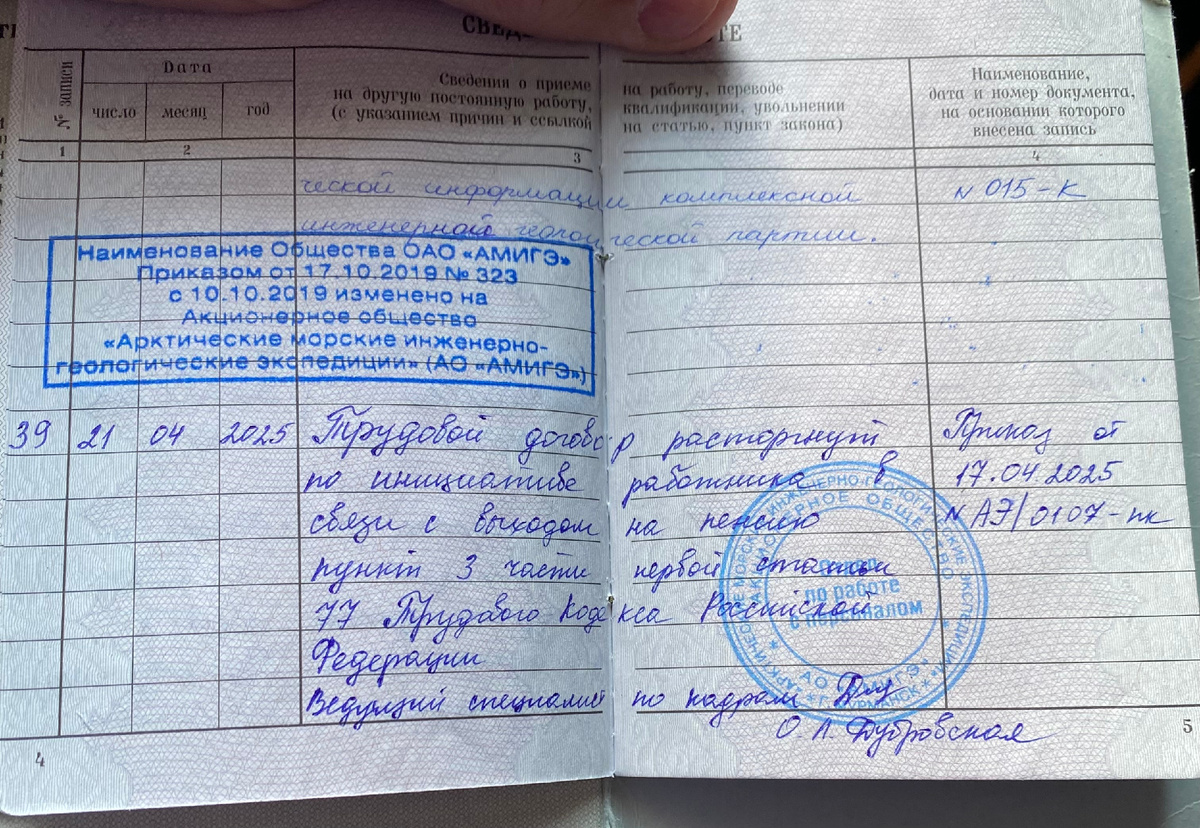 СВЕД ТЕ
№ записи
Дата
число месяц год
Сведения о приеме на работу, переводе
на другую постоянную работу, квалификации, увольнении
(с указанием причин и ссылкой на статью, пункт закона)
Наименование,
дата и номер документа,
на основании которого
внесена запись
1 2 3 4
ческой информации комплексной N 015-К
инженерной геологической партии.
Наименование Общества ОАО «АМИГЭ»
Приказом от 17.10.2019 № 323
с 10.10.2019 изменено на
Акционерное общество
«Арктические морские инженерно-
геологические экспедиции» (АО «АМИГЭ»)
39 21 04 2025 Трудовой договор расторгнут Приказ от
по инициативе работника в 17.04.2025
связи с выходом на пенсию N АЭ/0107-пк
пункт 3 части первой статьи
77 Трудового Кодекса Российской
Федерации
Ведущий специалист по кадрам
О.Л. Дубровская
АРКТИЧЕСКИЕ МОРСКИЕ ИНЖЕНЕРНО-ГЕОЛОГИЧЕСКИЕ ЭКСПЕДИЦИИ
АКЦИОНЕРНОЕ ОБЩЕСТВО
по работе
с персоналом
АО «АМИГЭ»
Г. МУРМАНСК
4 5